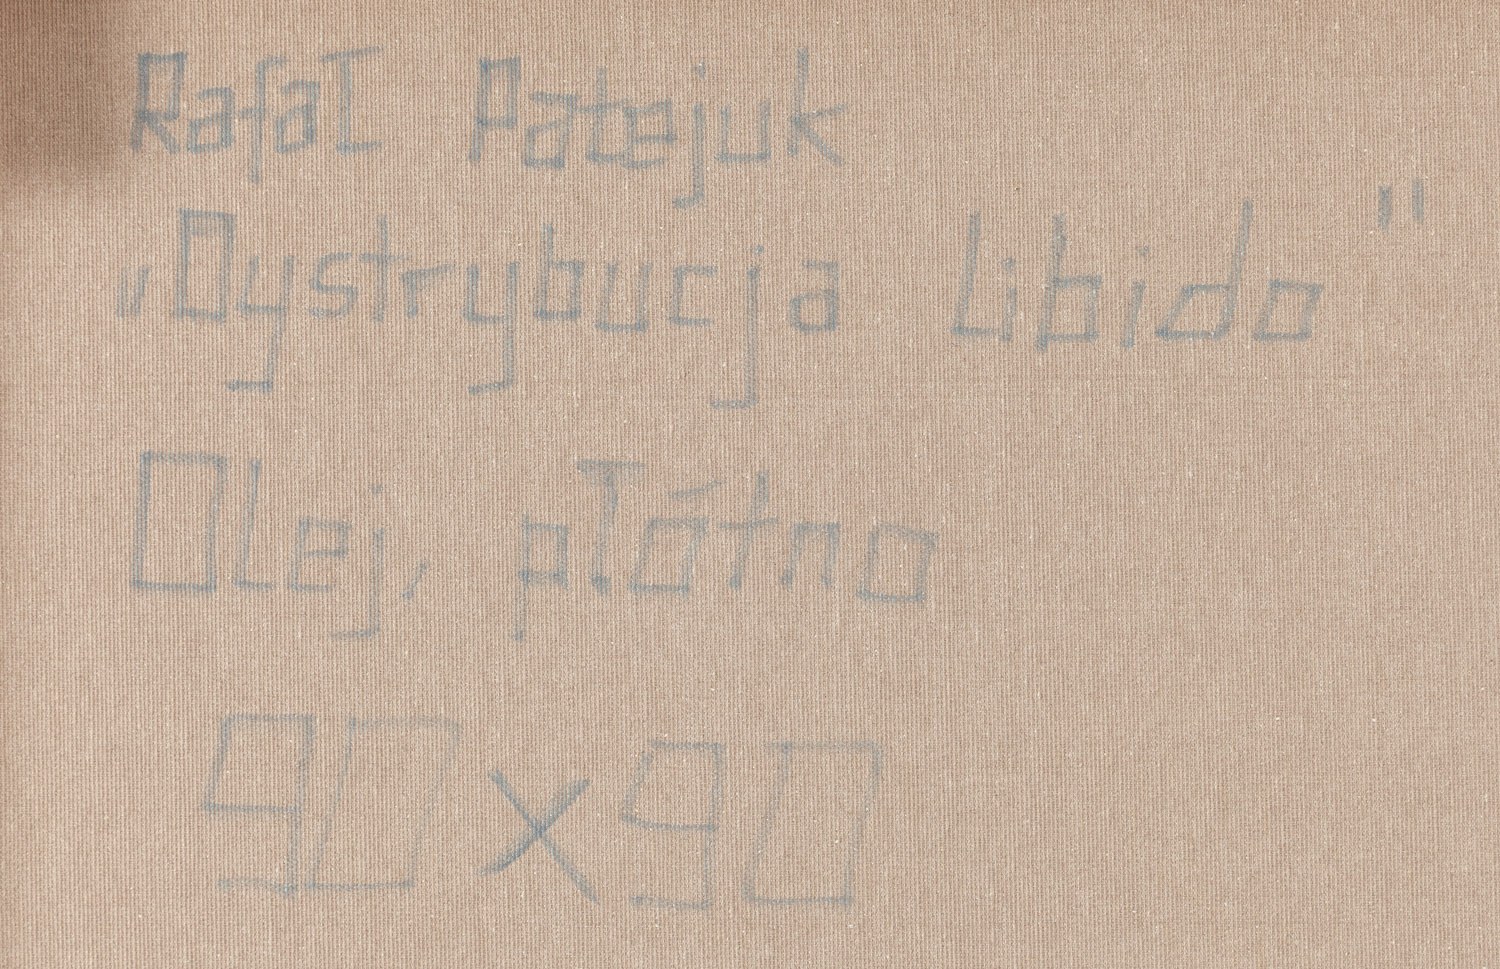 Rafał Patejuk
„Dystrybucja libido"
Olej, płótno
90 x 90